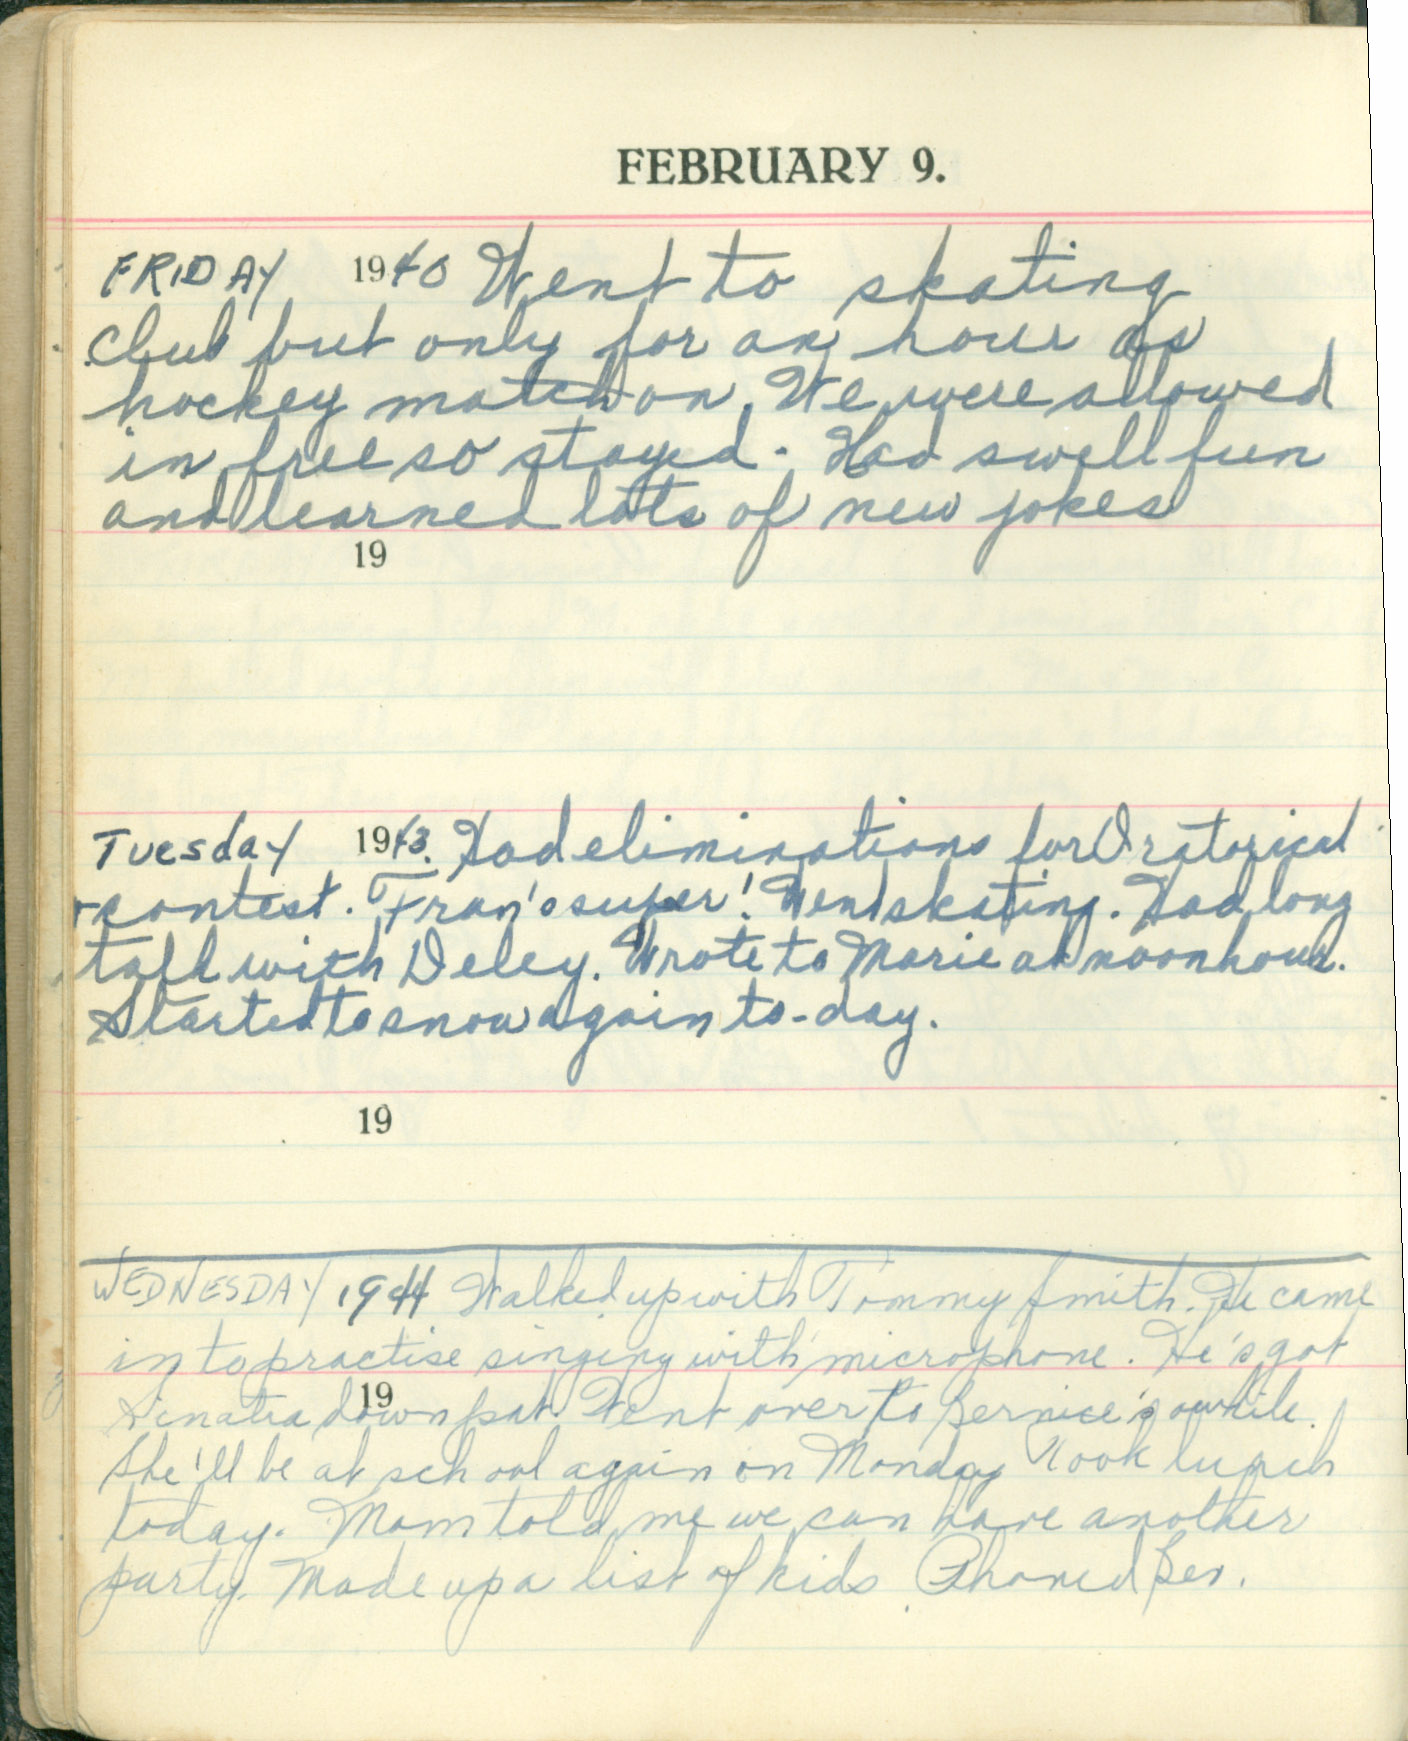 FEBRUARY 9.
FRIDAY 1940 Went to skating
club but only for an hour as
hockey match on. We were allowed
in free so stayed. Had swell fun
and learned lots of new jokes
19
Tuesday 1943. Had eliminations for Oratorical
contest. Fran's super! Went skating. Had long
talk with Deley. Wrote to Marie at noon hour.
Started to snow again to-day.
19
WEDNESDAY 1944 Walked up with Tommy Smith. He came
in to practise singing with microphone. He's got
19
Sinatra down pat. Went over to Bernice's awhile.
She'll be at school again on Monday Took lunch
today. Mom told me we can have another
party. Made up a list of kids. Phoned Bev.